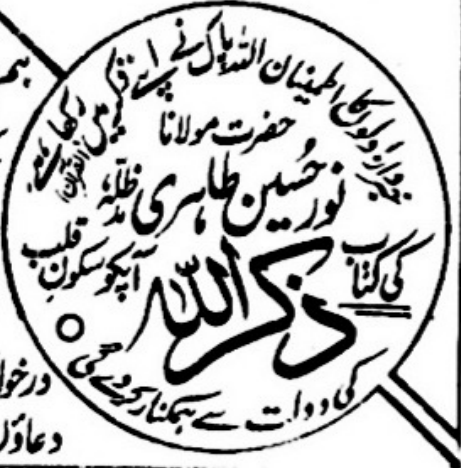 خبردار دلوں کا اطمینان اللہ پاک نے اپنے ذکر میں رکھا ہے (القرآن)
حضرت مولانا
نور حسین طاہری مدظلہ
کی کتاب
ذکر اللہ
آپکو سکون قلب
کی دولت سے ہمکنار کر دے گی
ہم
درخوا
دعاؤں